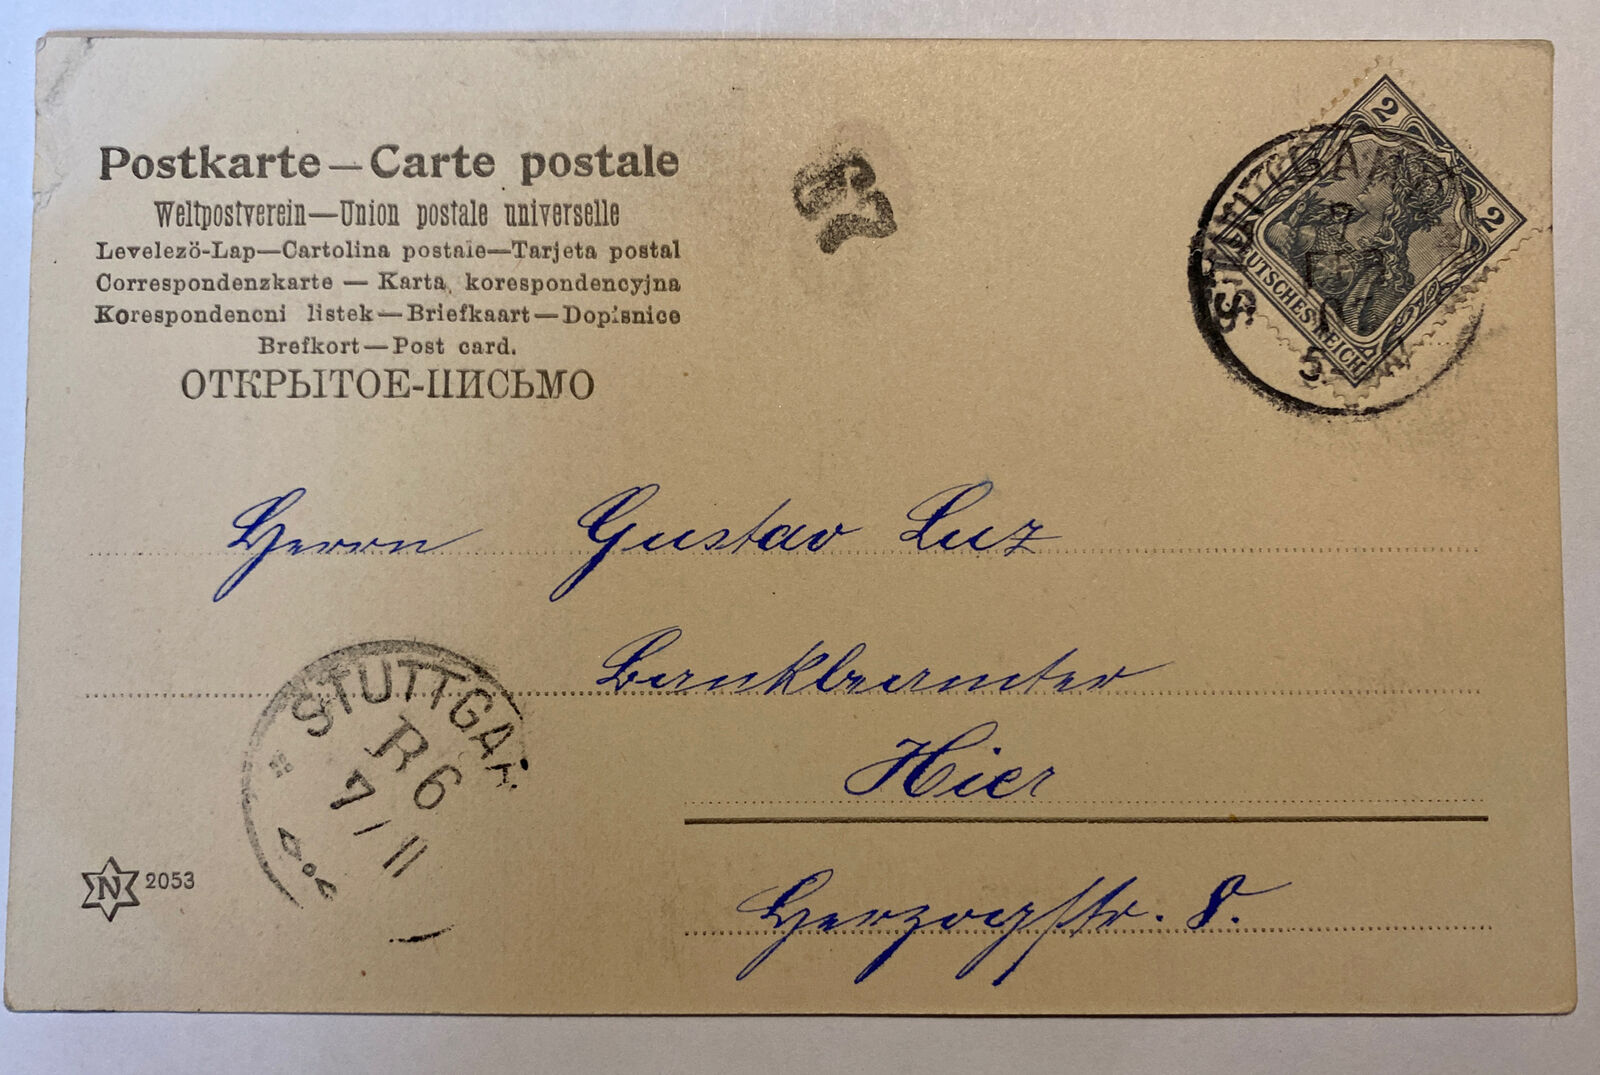 Postkarte — Carte postale
Weltpostverein—Union postale universelle
Levelezö-Lap—Cartolina postale—Tarjeta postal
Correspondenzkarte — Karta korespondencyjna
Korespondencni listek—Briefkaart—Dopisnice
Brefkort—Post card.
ОТКРЫТОЕ-ПИСЬМО
57
2
2
DEUTSCHES REICH
5-
Herrn Gustav Luz
Bankbeamter
Hier
Herzogstr. 8.
STUTTGAR
R 6
7/11
N 2053